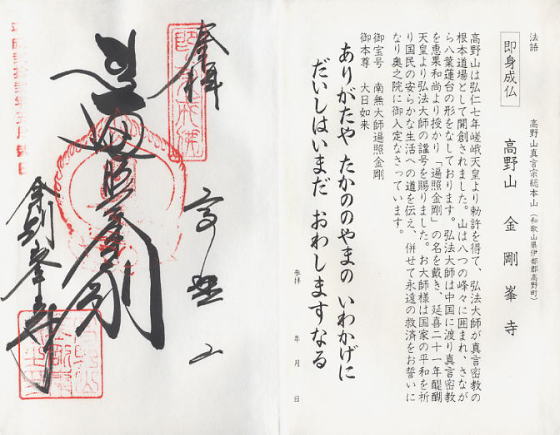 法語
即身成仏
高野山真言宗総本山(和歌山県伊都郡高野町)
高野山 金剛峯寺
高野山は弘仁七年嵯峨天皇より勅許を得て、弘法大師が真言密教の
根本道場として開創されました。山は八つの峰々に囲まれ、さなが
ら八葉蓮台の形をなしております。弘法大師は中国に渡り真言密教
を恵果和尚より授かり「遍照金剛」の名を戴き、延喜二十一年醍醐
天皇より弘法大師の諡号を賜りました。お大師様は国家の平和を祈
り国民の安らかな生活への道を伝え、併せて永遠の救済をお誓いに
なり奥之院に御入定なさっています。
御宝号 南無大師遍照金剛
御本尊 大日如来
ありがたや たかののやまの いわかげに
だいしはいまだ おわしますなる
参拝 年 月 日
奉拝
高野山
遍照金剛
金剛峯寺